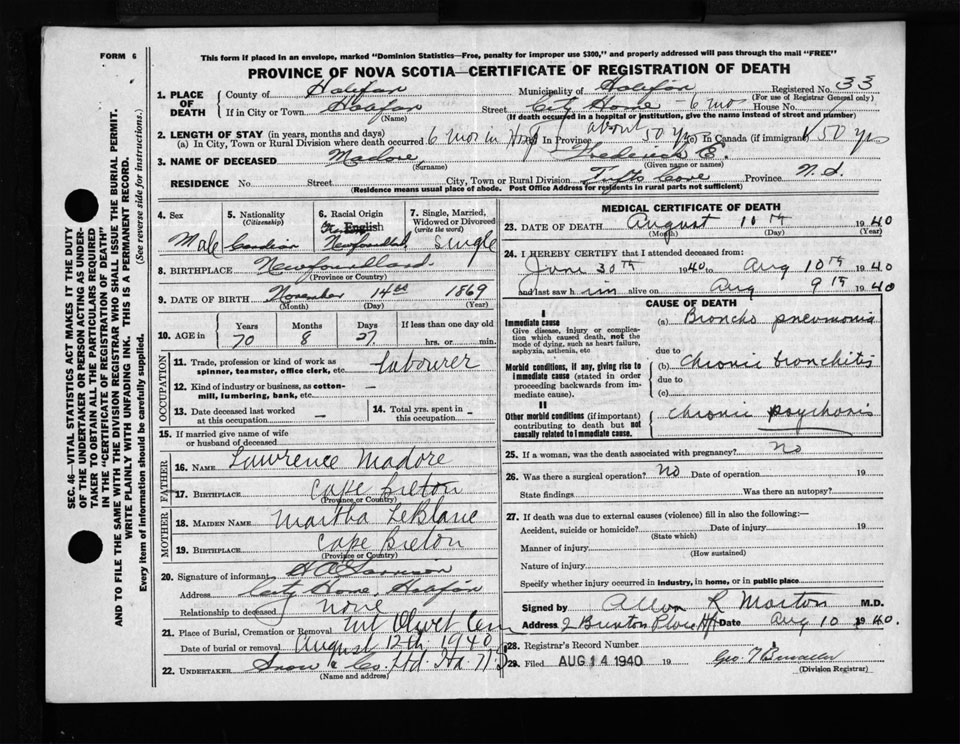 FORM 6
This form if placed in an envelope, marked "Dominion Statistics—Free, penalty for improper use $300," and properly addressed will pass through the mail "FREE"
PROVINCE OF NOVA SCOTIA—CERTIFICATE OF REGISTRATION OF DEATH
SEC. 46—VITAL STATISTICS ACT MAKES IT THE DUTY
OF THE UNDERTAKER OR PERSON ACTING AS UNDER-
TAKER TO OBTAIN ALL THE PARTICULARS REQUIRED
IN THE "CERTIFICATE OF REGISTRATION OF DEATH"
AND TO FILE THE SAME WITH THE DIVISION REGISTRAR WHO SHALL ISSUE THE BURIAL PERMIT.
WRITE PLAINLY WITH UNFADING INK. THIS IS A PERMANENT RECORD.
Every item of information should be carefully supplied. (See reverse side for instructions.)
1. PLACE OF DEATH
County of Halifax Municipality of Halifax Registered No. 33
(For use of Registrar General only)
If in City or Town Halifax Street City Home - 6 mos House No.
(Name) (If death occurred in a hospital or institution, give the name instead of street and number)
2. LENGTH OF STAY (in years, months and days)
(a) In City, Town or Rural Division where death occurred 6 mos in Hosp In Province about 50 yrs (c) In Canada (if immigrant) 50 yrs
3. NAME OF DECEASED Madore, Frederick E.
(Surname) (Given name or names)
RESIDENCE No. Street City, Town or Rural Division Tufts Cove Province N.S.
(Residence means usual place of abode. Post Office Address for residents in rural parts not sufficient)
4. Sex Male
5. Nationality (Citizenship) Canadian
6. Racial Origin English Newfoundland
7. Single, Married, Widowed or Divorced (write the word) Single
8. BIRTHPLACE Newfoundland
(Province or Country)
9. DATE OF BIRTH November 14th 1869
(Month) (Day) (Year)
10. AGE in Years Months Days If less than one day old
70 8 27 hrs. or min.
OCCUPATION
11. Trade, profession or kind of work as spinner, teamster, office clerk, etc. labourer
12. Kind of industry or business, as cotton-mill, lumbering, bank, etc. —
13. Date deceased last worked at this occupation — 14. Total yrs. spent in this occupation —
15. If married give name of wife or husband of deceased
FATHER
16. NAME Lawrence Madore
17. BIRTHPLACE Cape Breton
(Province or Country)
MOTHER
18. MAIDEN NAME Martha LeBlanc
19. BIRTHPLACE Cape Breton
(Province or Country)
20. Signature of informant
Address City Home, Halifax
Relationship to deceased none
21. Place of Burial, Cremation or Removal Mt Olivet Cem
Date of burial or removal August 12th 1940
22. UNDERTAKER Snow & Co. Ltd.
(Name and address)
MEDICAL CERTIFICATE OF DEATH
23. DATE OF DEATH August 10th 1940
(Month) (Day) (Year)
24. I HEREBY CERTIFY that I attended deceased from:
June 30th 1940 to Aug 10th 1940
and last saw him alive on Aug 9th 1940
CAUSE OF DEATH
I
Immediate cause
Give disease, injury or complication which caused death, not the mode of dying, such as heart failure, asphyxia, asthenia, etc
(a) Broncho pneumonia
due to
Morbid conditions, if any, giving rise to immediate cause (stated in order proceeding backwards from immediate cause).
(b) Chronic bronchitis
due to
(c)
II
Other morbid conditions (if important) contributing to death but not causally related to immediate cause.
Chronic psychosis
25. If a woman, was the death associated with pregnancy? no
26. Was there a surgical operation? No Date of operation 19
State findings Was there an autopsy?
27. If death was due to external causes (violence) fill in also the following:—
Accident, suicide or homicide? Date of injury 19
(State which)
Manner of injury
(How sustained)
Nature of injury
Specify whether injury occurred in industry, in home, or in public place
Signed by Allan R Morton M.D.
Address Place Hfx Date Aug 10 1940.
28. Registrar's Record Number
29. Filed AUG 14 1940 19
(Division Registrar)